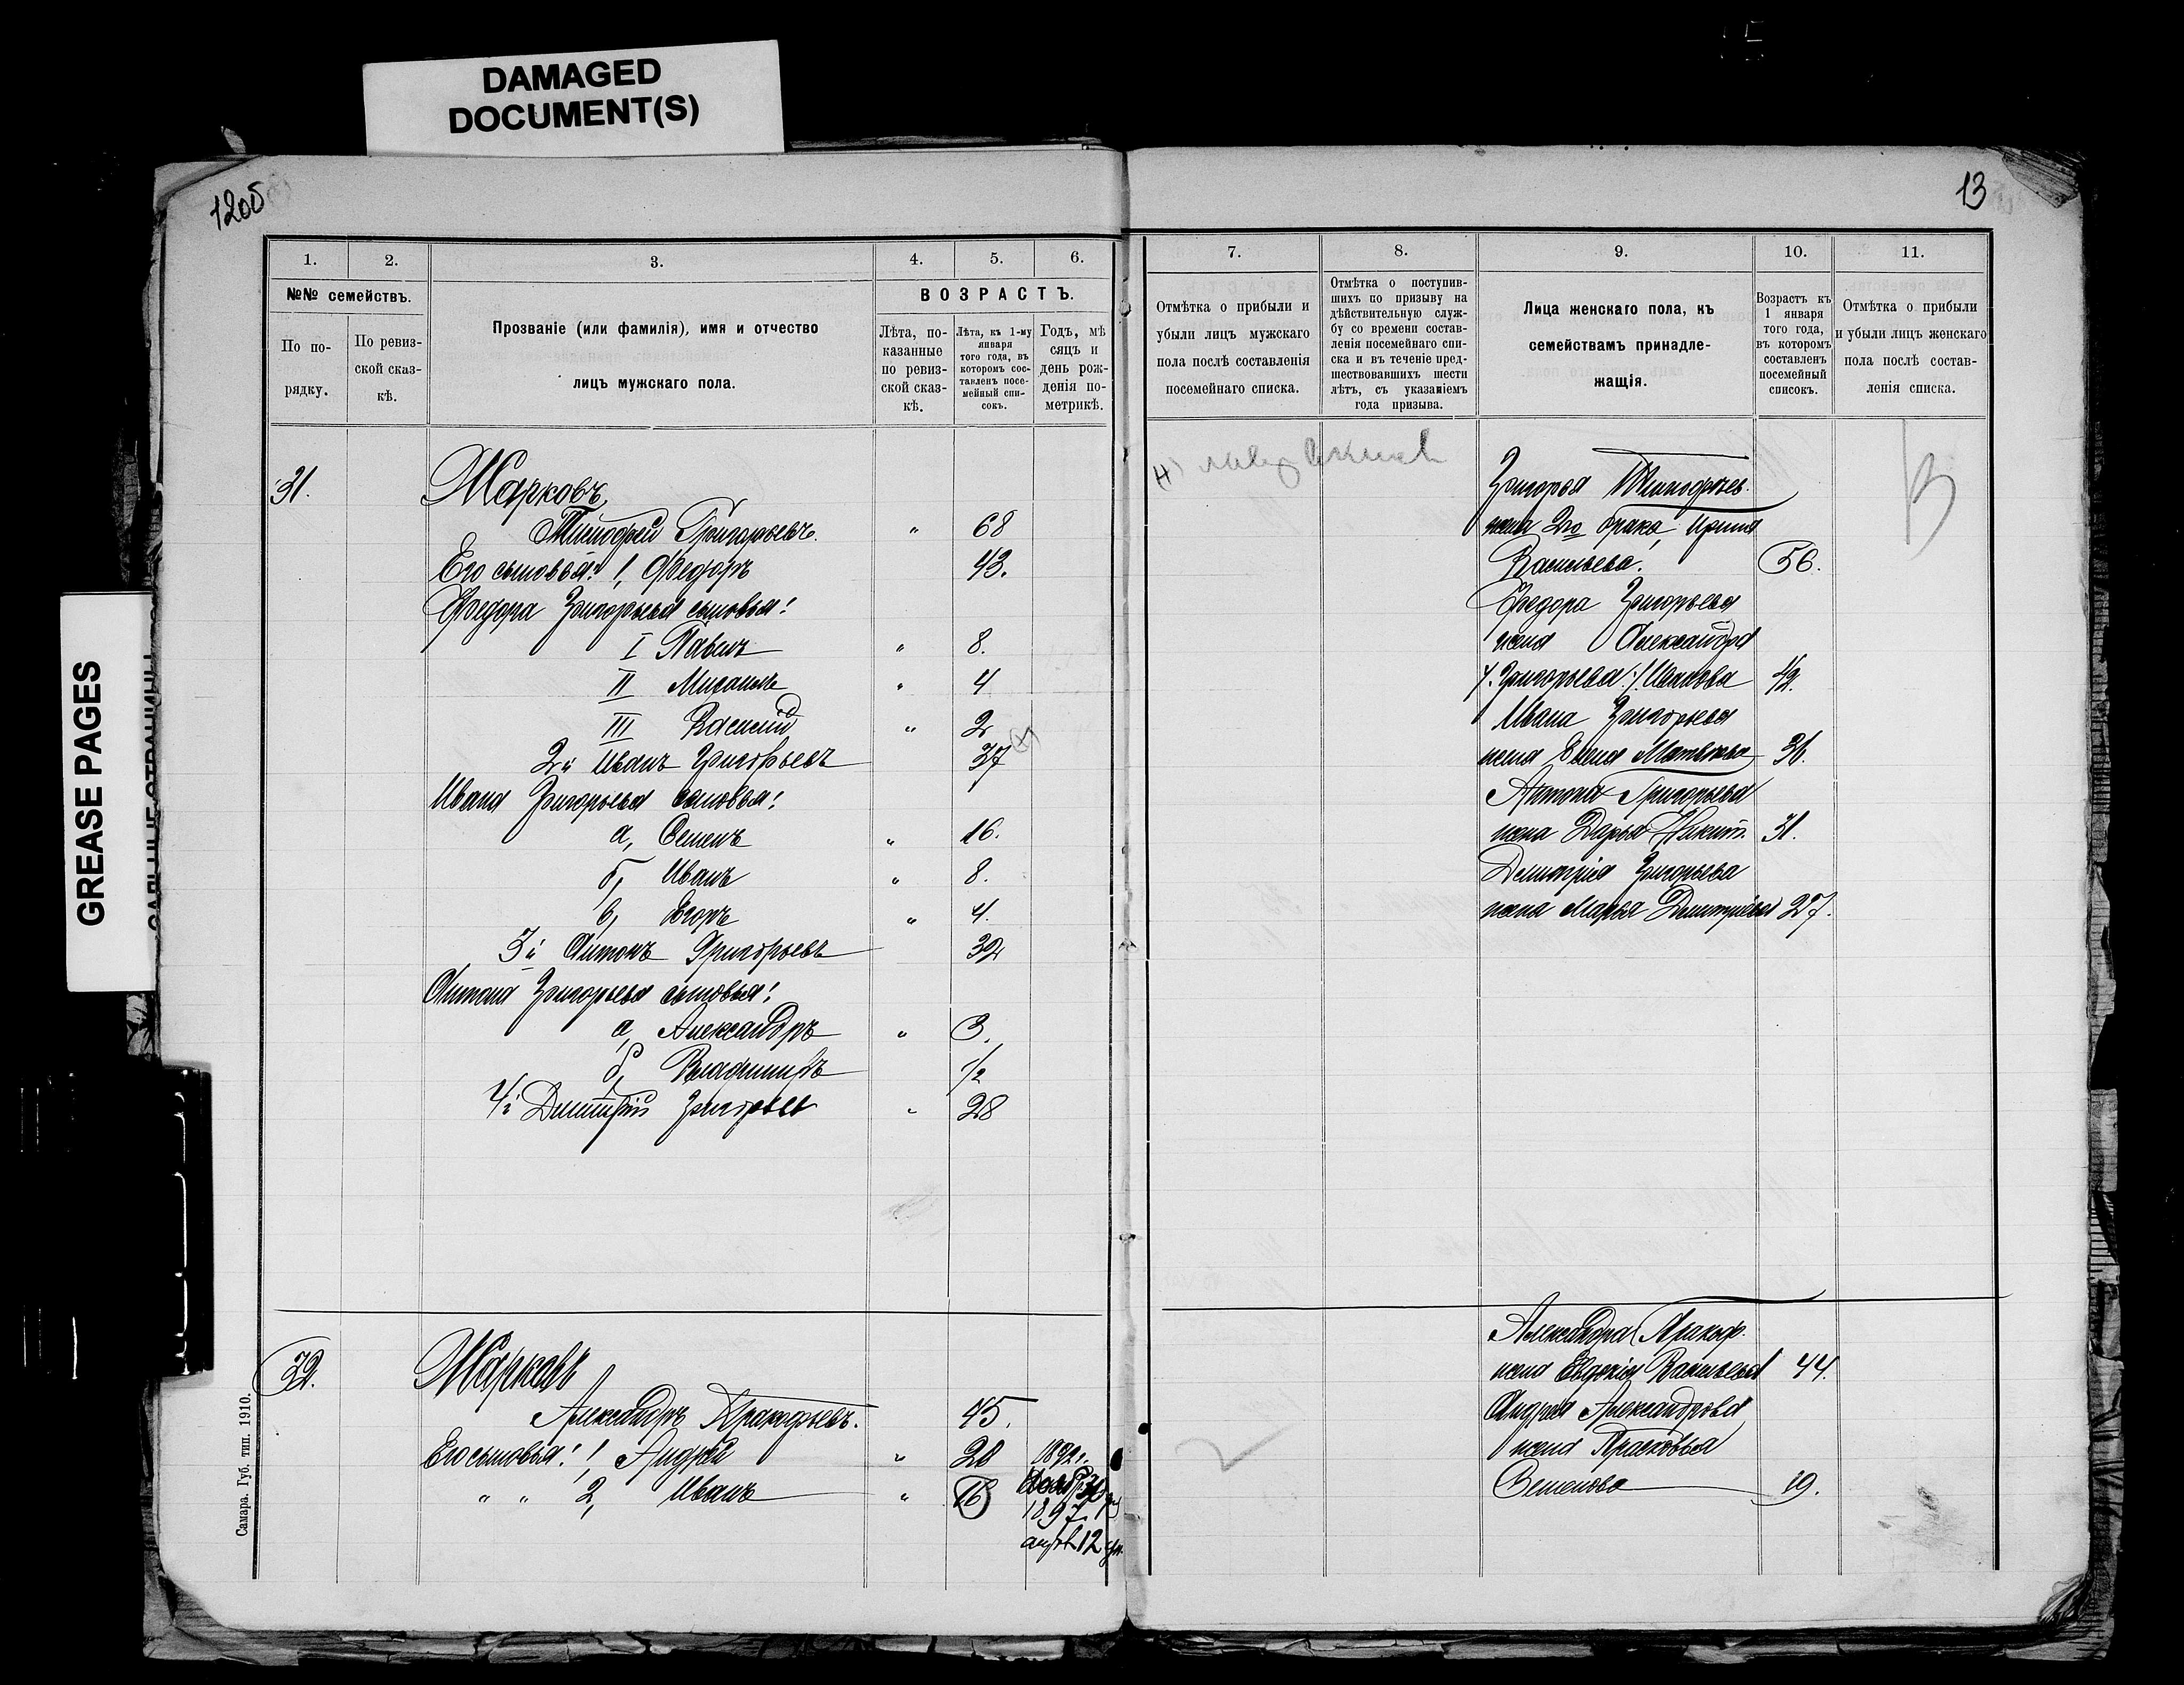 DAMAGED
DOCUMENT(S)
GREASE PAGES
12об
13
1.
2.
3.
4.
5.
6.
№№ семействъ.
По по-
рядку.
По ревиз-
ской сказ-
кѣ.
Прозваніе (или фамилія), имя и отчество
лицъ мужскаго пола.
ВОЗРАСТЪ.
Лѣта, по-
казанные
по ревиз-
ской сказ-
кѣ.
Лѣта, къ 1-му
января
того года, въ
которомъ сос-
тавленъ посе-
мейный спи-
сокъ.
Годъ, мѣ
сяцъ и
день рож-
денія по-
метрикѣ.
31.
Марковъ
Тимофей Григорьевъ. " 68
Его сыновья: 1, Федоръ 43.
Федора Григорьева сыновья:
I Павелъ " 8.
II Михаилъ " 4
III Василій " 2
2й Иванъ Григорьевъ 37
Ивана Григорьева сыновья:
а, Семенъ " 16.
б, Иванъ " 8.
в, Егоръ " 4.
3й Антонъ Григорьевъ 32
Антона Григорьева сыновья:
а, Александръ " 3.
б, Владимиръ 1/2
4й Дмитрій Григорьев " 28
32.
Марковъ
Александръ Пракофьевъ. 45.
Его сыновья: 1, Андрей " 20 1892г.
" " 2, Иванъ " 16 1897
апр. 12 дн.
Самара. Губ. тип. 1910.
7.
8.
9.
10.
11.
Отмѣтка о прибыли и
убыли лицъ мужскаго
пола послѣ составленія
посемейнаго списка.
Отмѣтка о поступив-
шихъ по призыву на
дѣйствительную служ-
бу со времени состав-
ленія посемейнаго спи-
ска и въ теченіе пред-
шествовавшихъ шести
лѣтъ, съ указаніемъ
года призыва.
Лица женскаго пола, къ
семействамъ принадле-
жащія.
Возрастъ къ
1 января
того года,
въ которомъ
составленъ
посемейный
списокъ.
Отмѣтка о прибыли
и убыли лицъ женскаго
пола послѣ состав-
ленія списка.
Григорья Тимофеев.
жена 2го брака, Ирина
Васильева. 56.
Федора Григорьева
жена Александра
/. Григорьева ./ Иванова 42.
Ивана Григорьева
жена Елена Матвѣева 36.
Антона Григорьева
жена Дарья Никит. 31.
Дмитрія Григорьева
жена Марья Дмитріева 27.
Александра Пракоф.
жена Евдокія Васильева 44.
Андрея Александрова
жена Прасковья
Семенова 19.